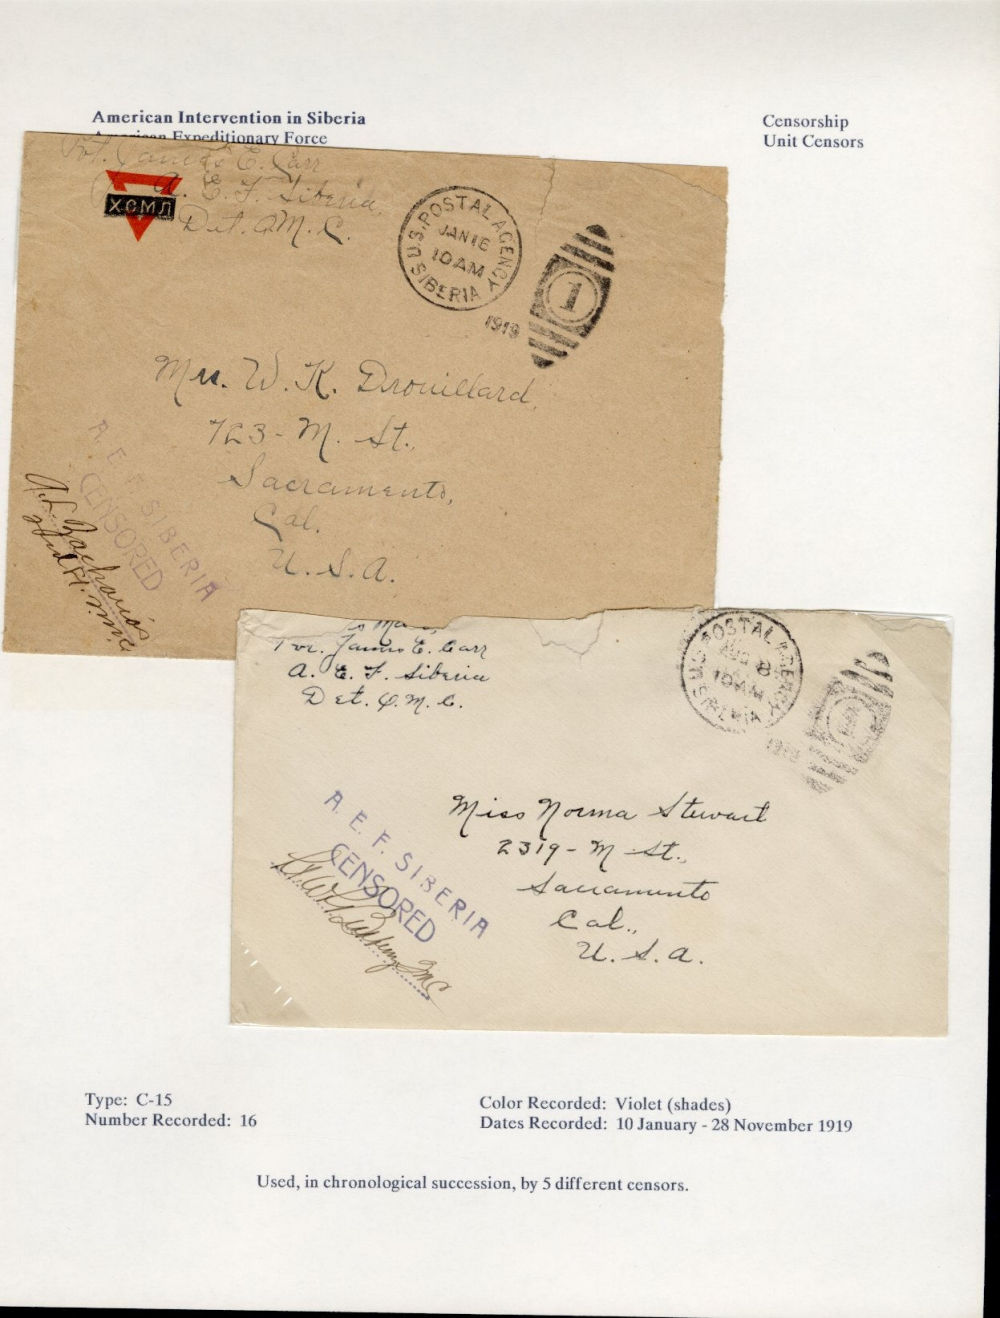 American Intervention in Siberia
American Expeditionary Force
Censorship
Unit Censors
Pvt. James E. Carr
A. E. F. Siberia,
Det. Q.M.C.
ХСМЛ
U.S. POSTAL AGENCY
JAN 16
10 AM
SIBERIA
1919
1
Mrs. W. K. Drouillard,
723 - M. St.,
Sacramento,
Cal.
U.S.A.
A. E. F. SIBERIA
CENSORED
Pvt. James E. Carr
A. E. F. Siberia
Det. Q.M.C.
U.S. POSTAL AGENCY
AUG 8
10 AM
SIBERIA
1919
1
Miss Norma Stewart
2319 - M St.,
Sacramento
Cal.,
U.S.A.
A. E. F. SIBERIA
CENSORED
QMC
Type: C-15
Number Recorded: 16
Color Recorded: Violet (shades)
Dates Recorded: 10 January - 28 November 1919
Used, in chronological succession, by 5 different censors.